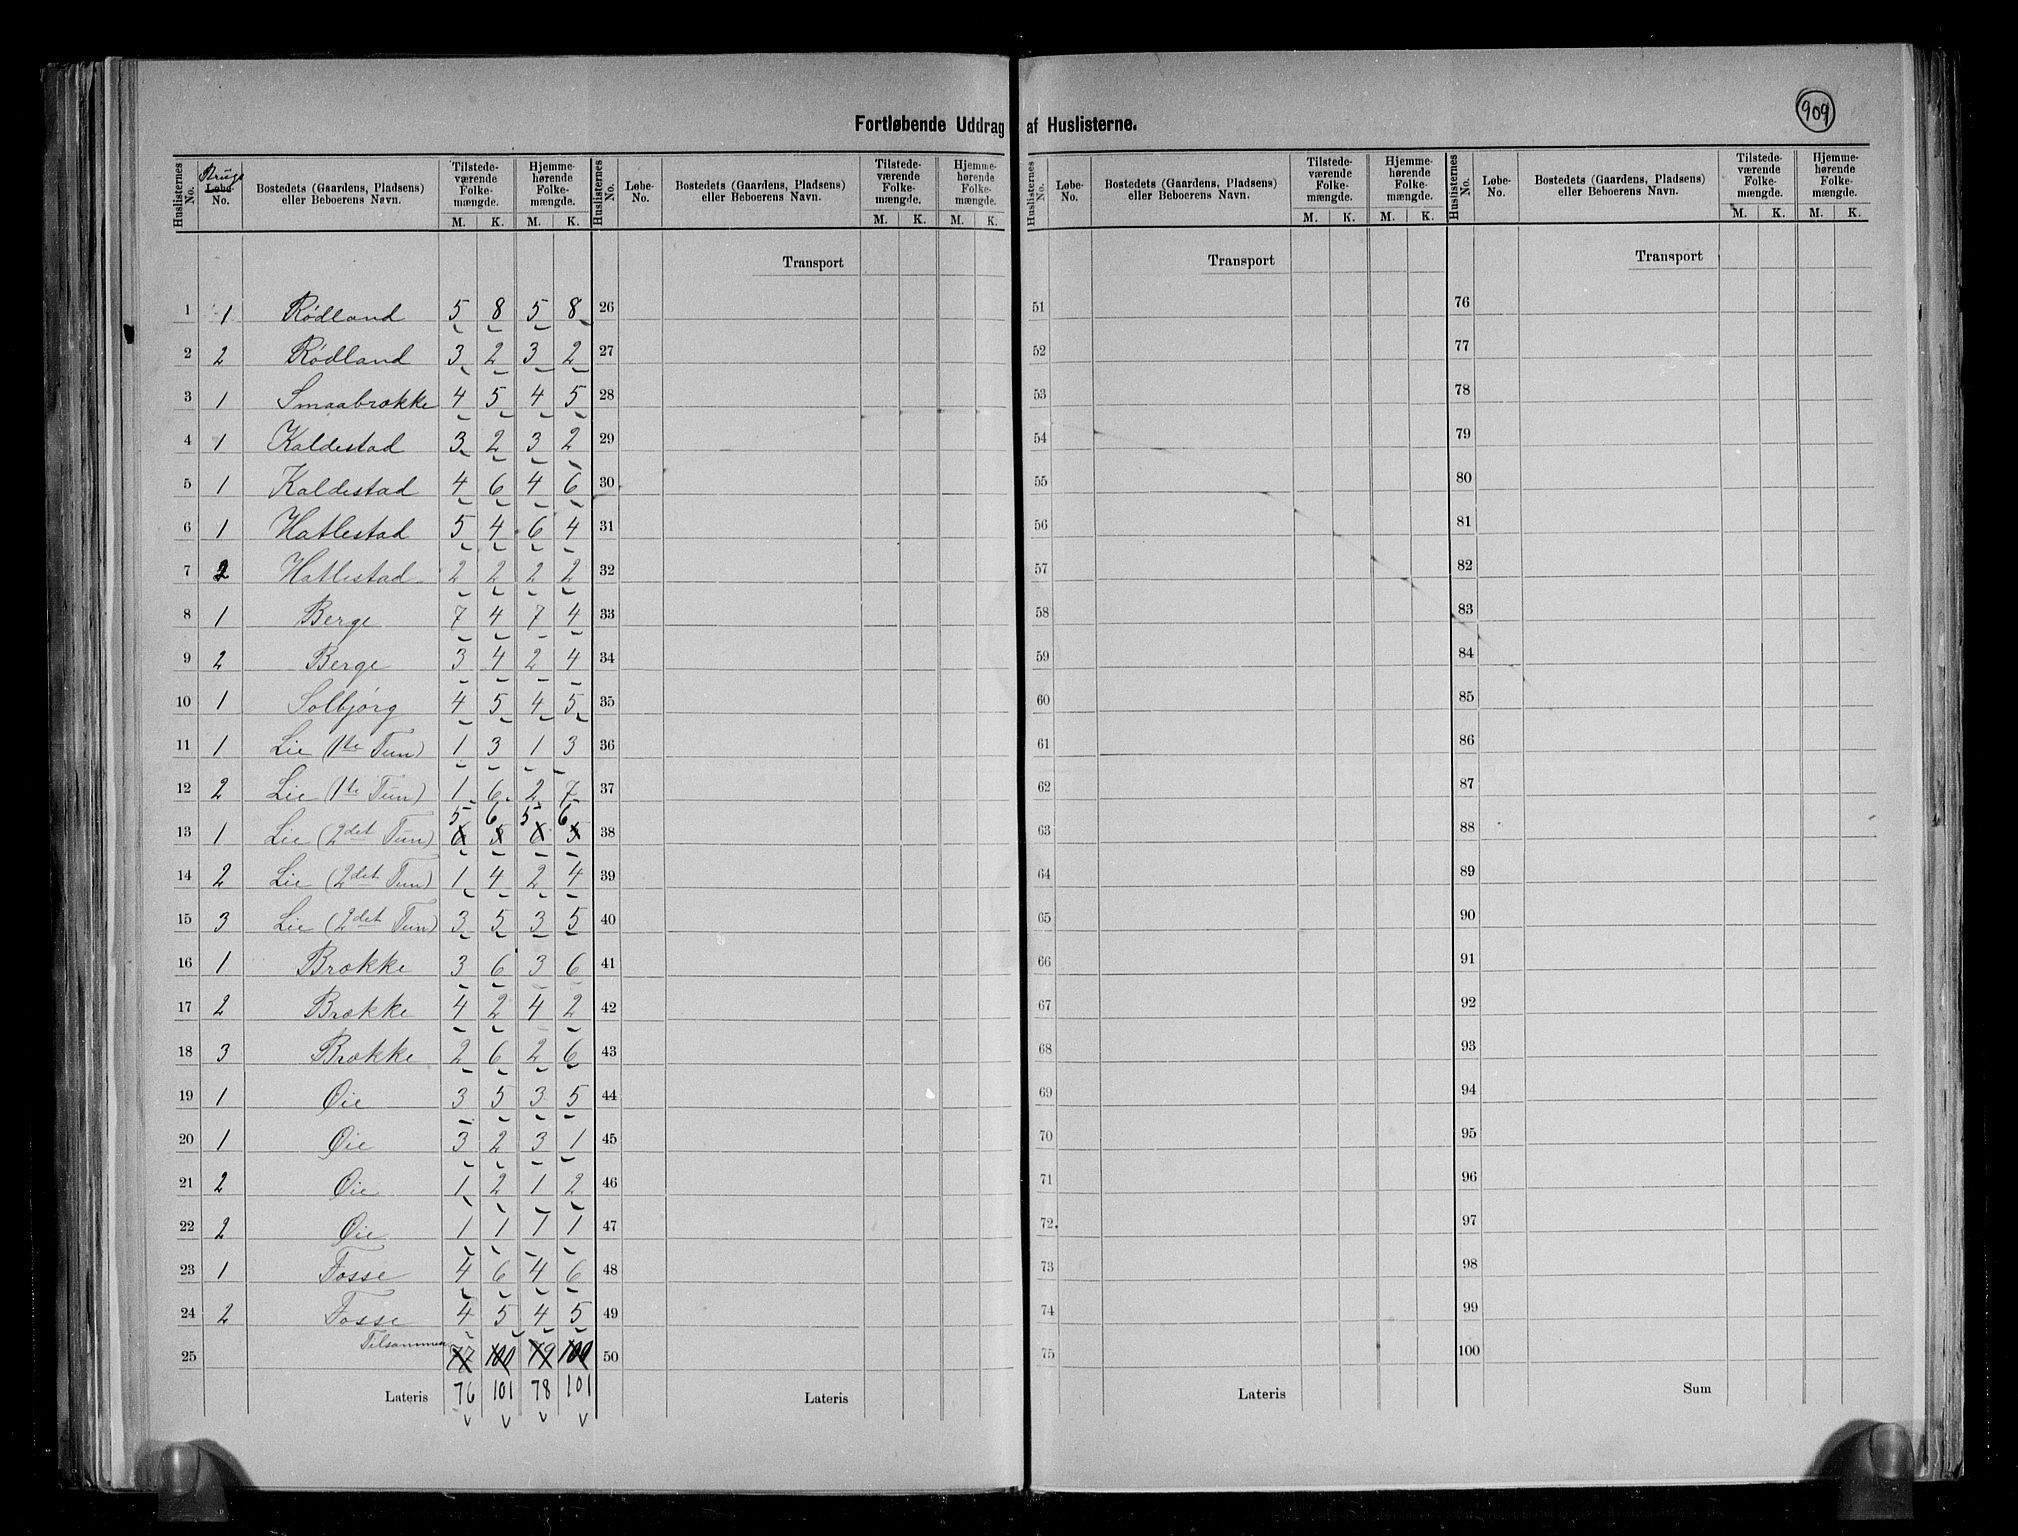 909
Fortløbende Uddrag af Huslisterne.
Huslisternes No. | Brugs Løbe-No. | Bostedets (Gaardens, Pladsens) eller Beboerens Navn. | Tilstedeværende Folkemængde. M. K. | Hjemmehørende Folkemængde. M. K. | Huslisternes No. | Løbe-No. | Bostedets (Gaardens, Pladsens) eller Beboerens Navn. | Tilstedeværende Folkemængde. M. K. | Hjemmehørende Folkemængde. M. K. | Huslisternes No. | Løbe-No. | Bostedets (Gaardens, Pladsens) eller Beboerens Navn. | Tilstedeværende Folkemængde. M. K. | Hjemmehørende Folkemængde. M. K. | Huslisternes No. | Løbe-No. | Bostedets (Gaardens, Pladsens) eller Beboerens Navn. | Tilstedeværende Folkemængde. M. K. | Hjemmehørende Folkemængde. M. K.
Transport Transport Transport
1 1 Rødland 5 8 5 8 26 51 76
2 2 Rødland 3 2 3 2 27 52 77
3 1 Smaabrække 4 5 4 5 28 53 78
4 1 Kaldestad 3 2 3 2 29 54 79
5 1 Kaldestad 4 6 4 6 30 55 80
6 1 Hatlestad 5 4 6 4 31 56 81
7 2 Hatlestad 2 2 2 2 32 57 82
8 1 Berge 7 4 7 4 33 58 83
9 2 Berge 3 4 2 4 34 59 84
10 1 Solbjørg 4 5 4 5 35 60 85
11 1 Lie (1te Tun) 1 3 1 3 36 61 86
12 2 Lie (1te Tun) 1 6 2 7 37 62 87
5 6 5 6
13 1 Lie (2det Tun) 6 5 6 5 38 63 88
14 2 Lie (2det Tun) 1 4 2 4 39 64 89
15 3 Lie (2det Tun) 3 5 3 5 40 65 90
16 1 Brække 3 6 3 6 41 66 91
17 2 Brække 4 2 4 2 42 67 92
18 3 Brække 2 6 2 6 43 68 93
19 1 Øie 3 5 3 5 44 69 94
20 1 Øie 3 2 3 1 45 70 95
21 2 Øie 1 2 1 2 46 71 96
22 2 Øie 1 1 1 1 47 72. 97
23 1 Fosse 4 6 4 6 48 73 98
24 2 Fosse 4 5 4 5 49 74 99
25 Tilsammen 77 100 79 100 50 75 100
Lateris 76 101 78 101 Lateris Lateris Sum